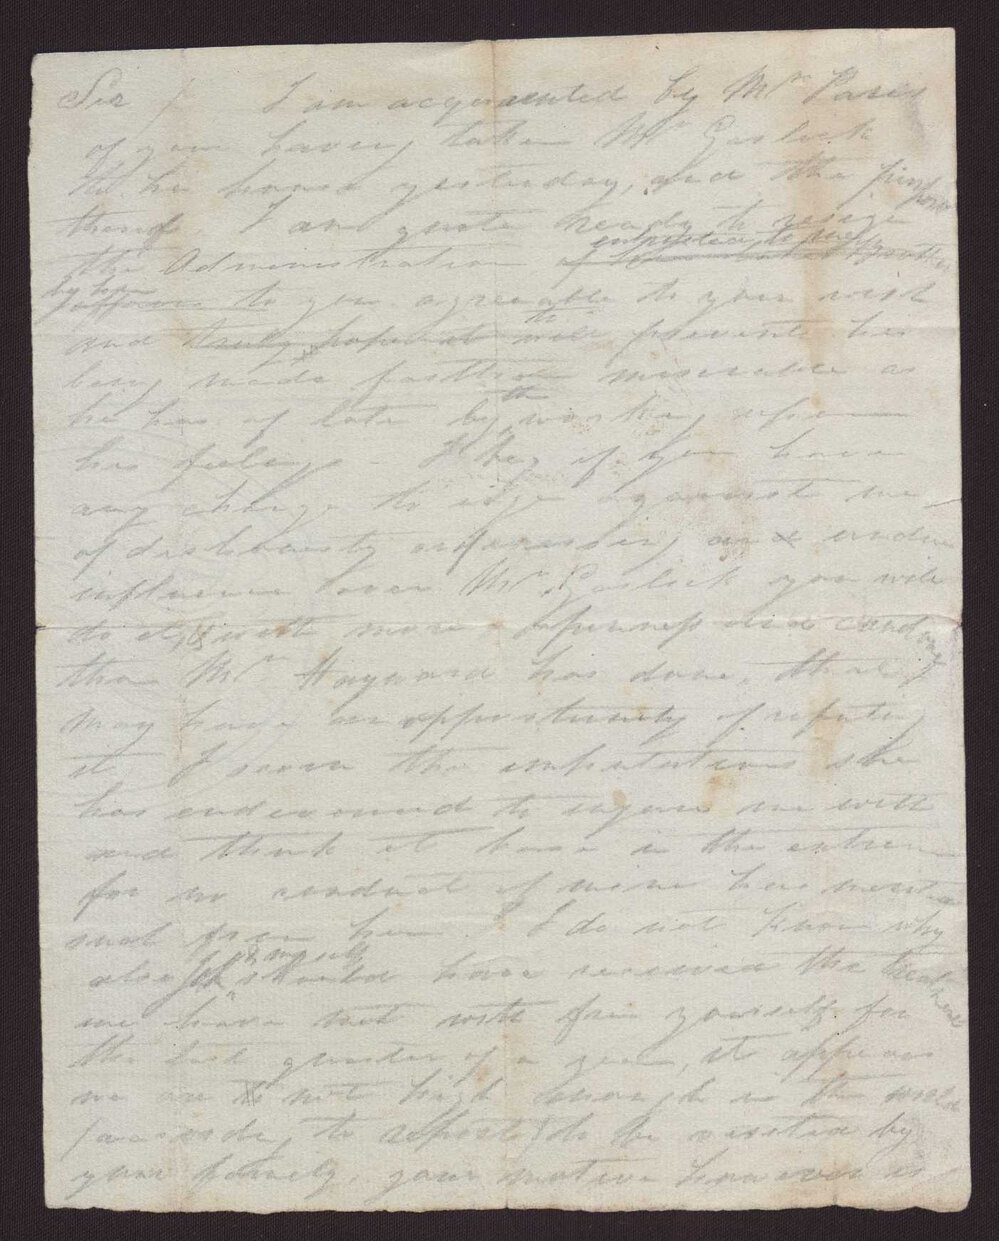 Sir / I am acquainted by Mr Paser
of your having taken Mr Garlick
to his house yesterday, and the purpose
thereof. I am quite ready to resign
the Administration of entrusted to me
by him to you agreeable to your wish
and truly hope it will prevent his
being made further miserable as
he has of late by the working upon
his feelings - I beg if you have
any charge to urge against me
of dishonesty or undue
influence over Mr Garlick you will
do it with more openness and candour
than Mr Hayward has done, that I
may have an opportunity of refuting
it. I scorn the imputations she
has endeavoured to injure me with
and think it base in the extreme
for no conduct of mine has merited
such from her. I do not know why
also & myself should have received the treatment
we have met with from yourself for
the last quarter of a year, it appears
we are not high enough in the world
(according to report) to be visited by
your family, your motive however is